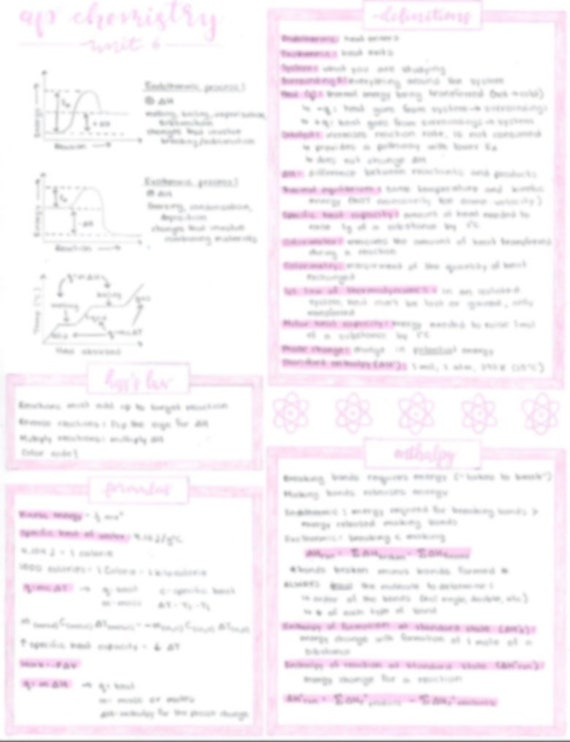 ap chemistry
unit 6
Energy
Reaction
Endothermic process:
⊕ ΔH
melting, boiling, vaporization,
sublimation
changes that involve
breaking/
Energy
Reaction
Exothermic process:
⊖ ΔH
freezing, condensation,
deposition
changes that involve
combining materials
Temp (°C)
q=mΔH
boiling
melting
q=mcΔT
Heat
hess's law
Reactions must add up to target reaction
Reverse reactions: flip the sign for ΔH
Multiply reactions: multiply ΔH
formulas
Kinetic energy = ½ mv²
Specific heat of water: 4.18 J/g°C
1 calorie
1000 calories = 1 Calorie = 1 kilocalorie
q=mcΔT → q= heat c= specific heat
m= mass ΔT = T₂ - T₁
↑ specific heat capacity = ↓ ΔT
q= mΔH → q= heat
m= mass or moles
ΔH= enthalpy for the phase change
definitions
Endothermic: heat enters
Exothermic: heat exits
System: what you are studying
Surroundings: everything around the system
Heat (q): thermal energy being transferred (hot→cold)
↳ -q: heat goes from system → surroundings
↳ +q: heat goes from surroundings → system
Catalyst: increases reaction rate, is not consumed
↳ provides a pathway with lower Ea
↳ does not change ΔH
ΔH: difference between reactants and products
Thermal equilibrium: same temperature and kinetic
energy (but not necessarily the same velocity)
Specific heat capacity: amount of heat needed to
raise 1g of a substance by 1°C
Calorimeter: measures the amount of heat transferred
during a reaction
Calorimetry: measurement of the quantity of heat
exchanged
1st law of thermodynamics: in an isolated
system, heat can't be lost or gained, only
transferred
Molar heat capacity: energy needed to raise 1 mol
of a substance by 1°C
Phase change: change in potential energy
Standard enthalpy (ΔH°): 1 mol, 1 atm, 298 K (25°C)
enthalpy
Breaking bonds requires energy ("takes to break")
Making bonds releases energy
Endothermic: energy required for breaking bonds >
energy released making bonds
Exothermic: breaking < making
ΔHrxn = ΣΔHbroken - ΣΔHformed
*bonds broken minus bonds formed*
ALWAYS draw the molecule to determine:
↳ order of the bonds (ex: single, double, etc.)
↳ # of each type of bond
Enthalpy of formation at standard state (ΔH°f):
energy change with formation of 1 mole of a
substance
Enthalpy of reaction at standard state (ΔH°rxn):
energy change for a reaction
ΔH°rxn = ΣΔHf°products - ΣΔHf°reactants